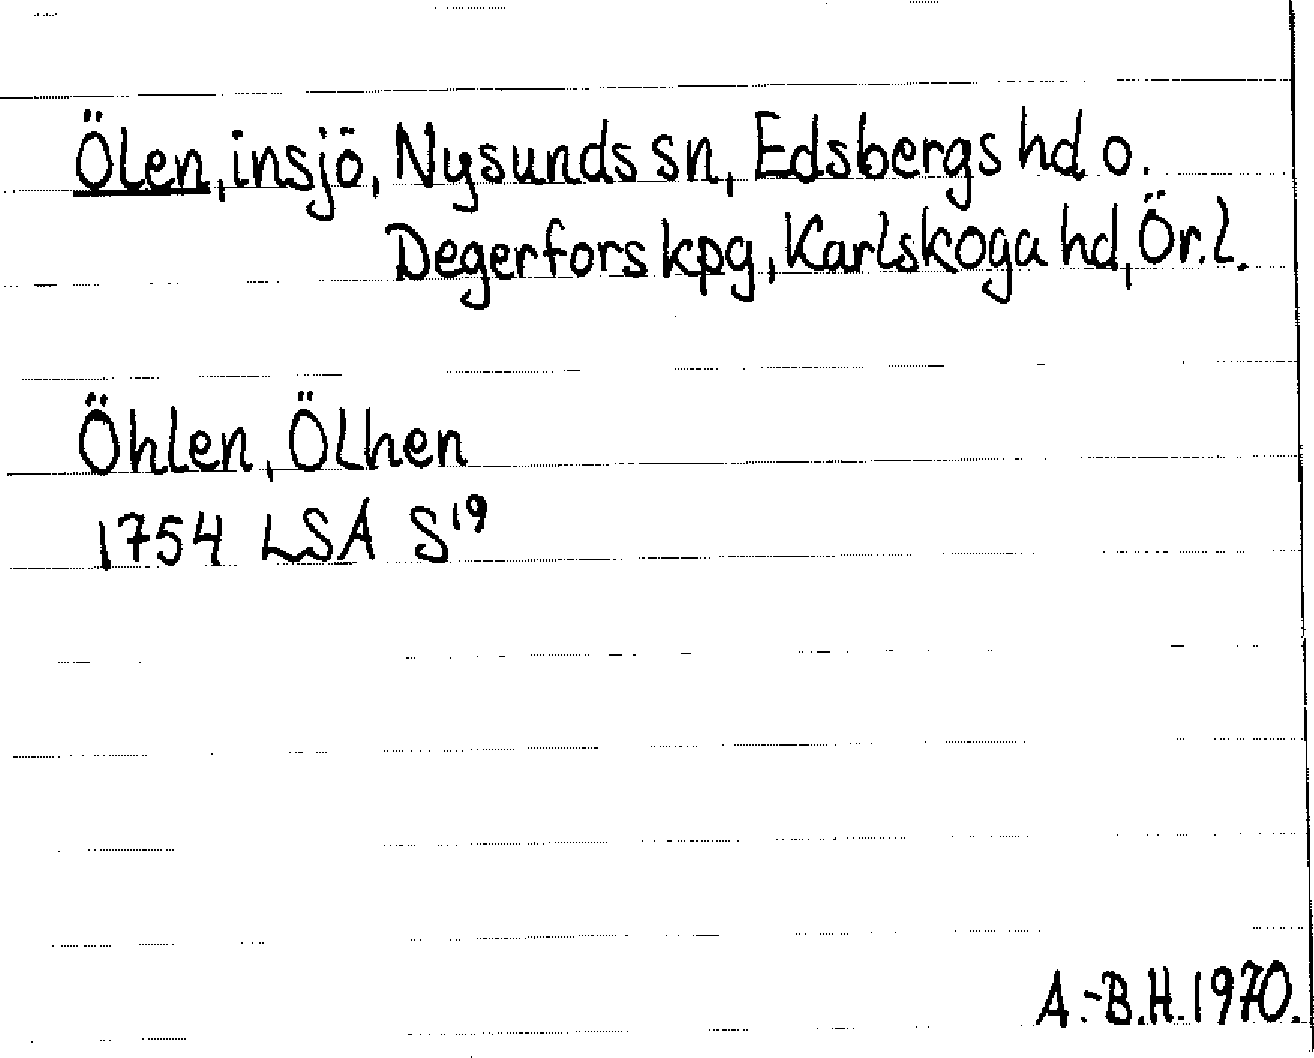 Ölen, insjö, Nysunds sn, Edsbergs hd o.
Degerfors kpg, Karlskoga hd, Ör. l.
Öhlen, Ölhen
1754 LSA S¹⁹
A.-B.H. 1970.